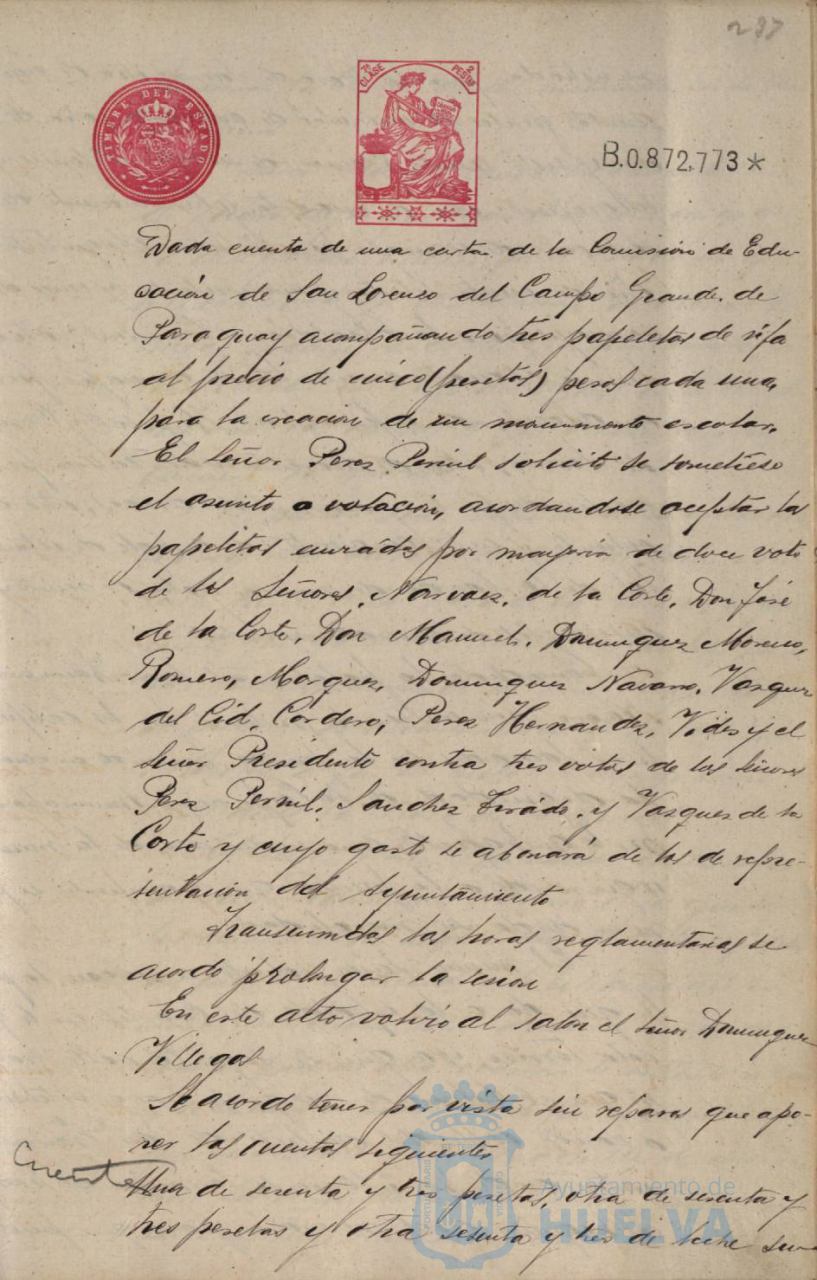 237
TIMBRE DEL ESTADO
7ª CLASE
2 PESETAS
B.0.872,773*
Dada cuenta de una carta de la Comisión de Edu-
cación de San Lorenzo del Campo Grande de
Paraguay acompañando tres papeletas de rifa
al precio de cinco (pesetas) pesos cada una,
para la creacion de un monumento escolar.
El Señor Perez Pernil solicitó se sometiese
el asunto a votación, acordandose aceptar las
papeletas enviadas por mayoria de doce votos
de los Señores, Narvaez, de la Corte, Don José
de la Corte, Don Manuel, Dominguez Moreno,
Romero, Marquez, Dominguez Navarro, Vazquez
del Cid, Cordero, Perez Hernandez, Vides y el
Señor Presidente contra tres votos de los Señores
Perez Pernil, Sanchez Tirado, y Vazquez de la
Corte y cuyo gasto se abonará de los de repre-
sentación del Ayuntamiento
Transcurridas las horas reglamentarias se
acordó prolongar la sesion
En este acto volvió al salon el Señor Dominguez
Villegas
Se acordo tener por vista sin reparos que opo-
ner las cuentas siguientes
Cuentas
Una de sesenta y tres pesetas, otra de sesenta y
tres pesetas y otra sesenta y tres de leche
Ayuntamiento de
HUELVA